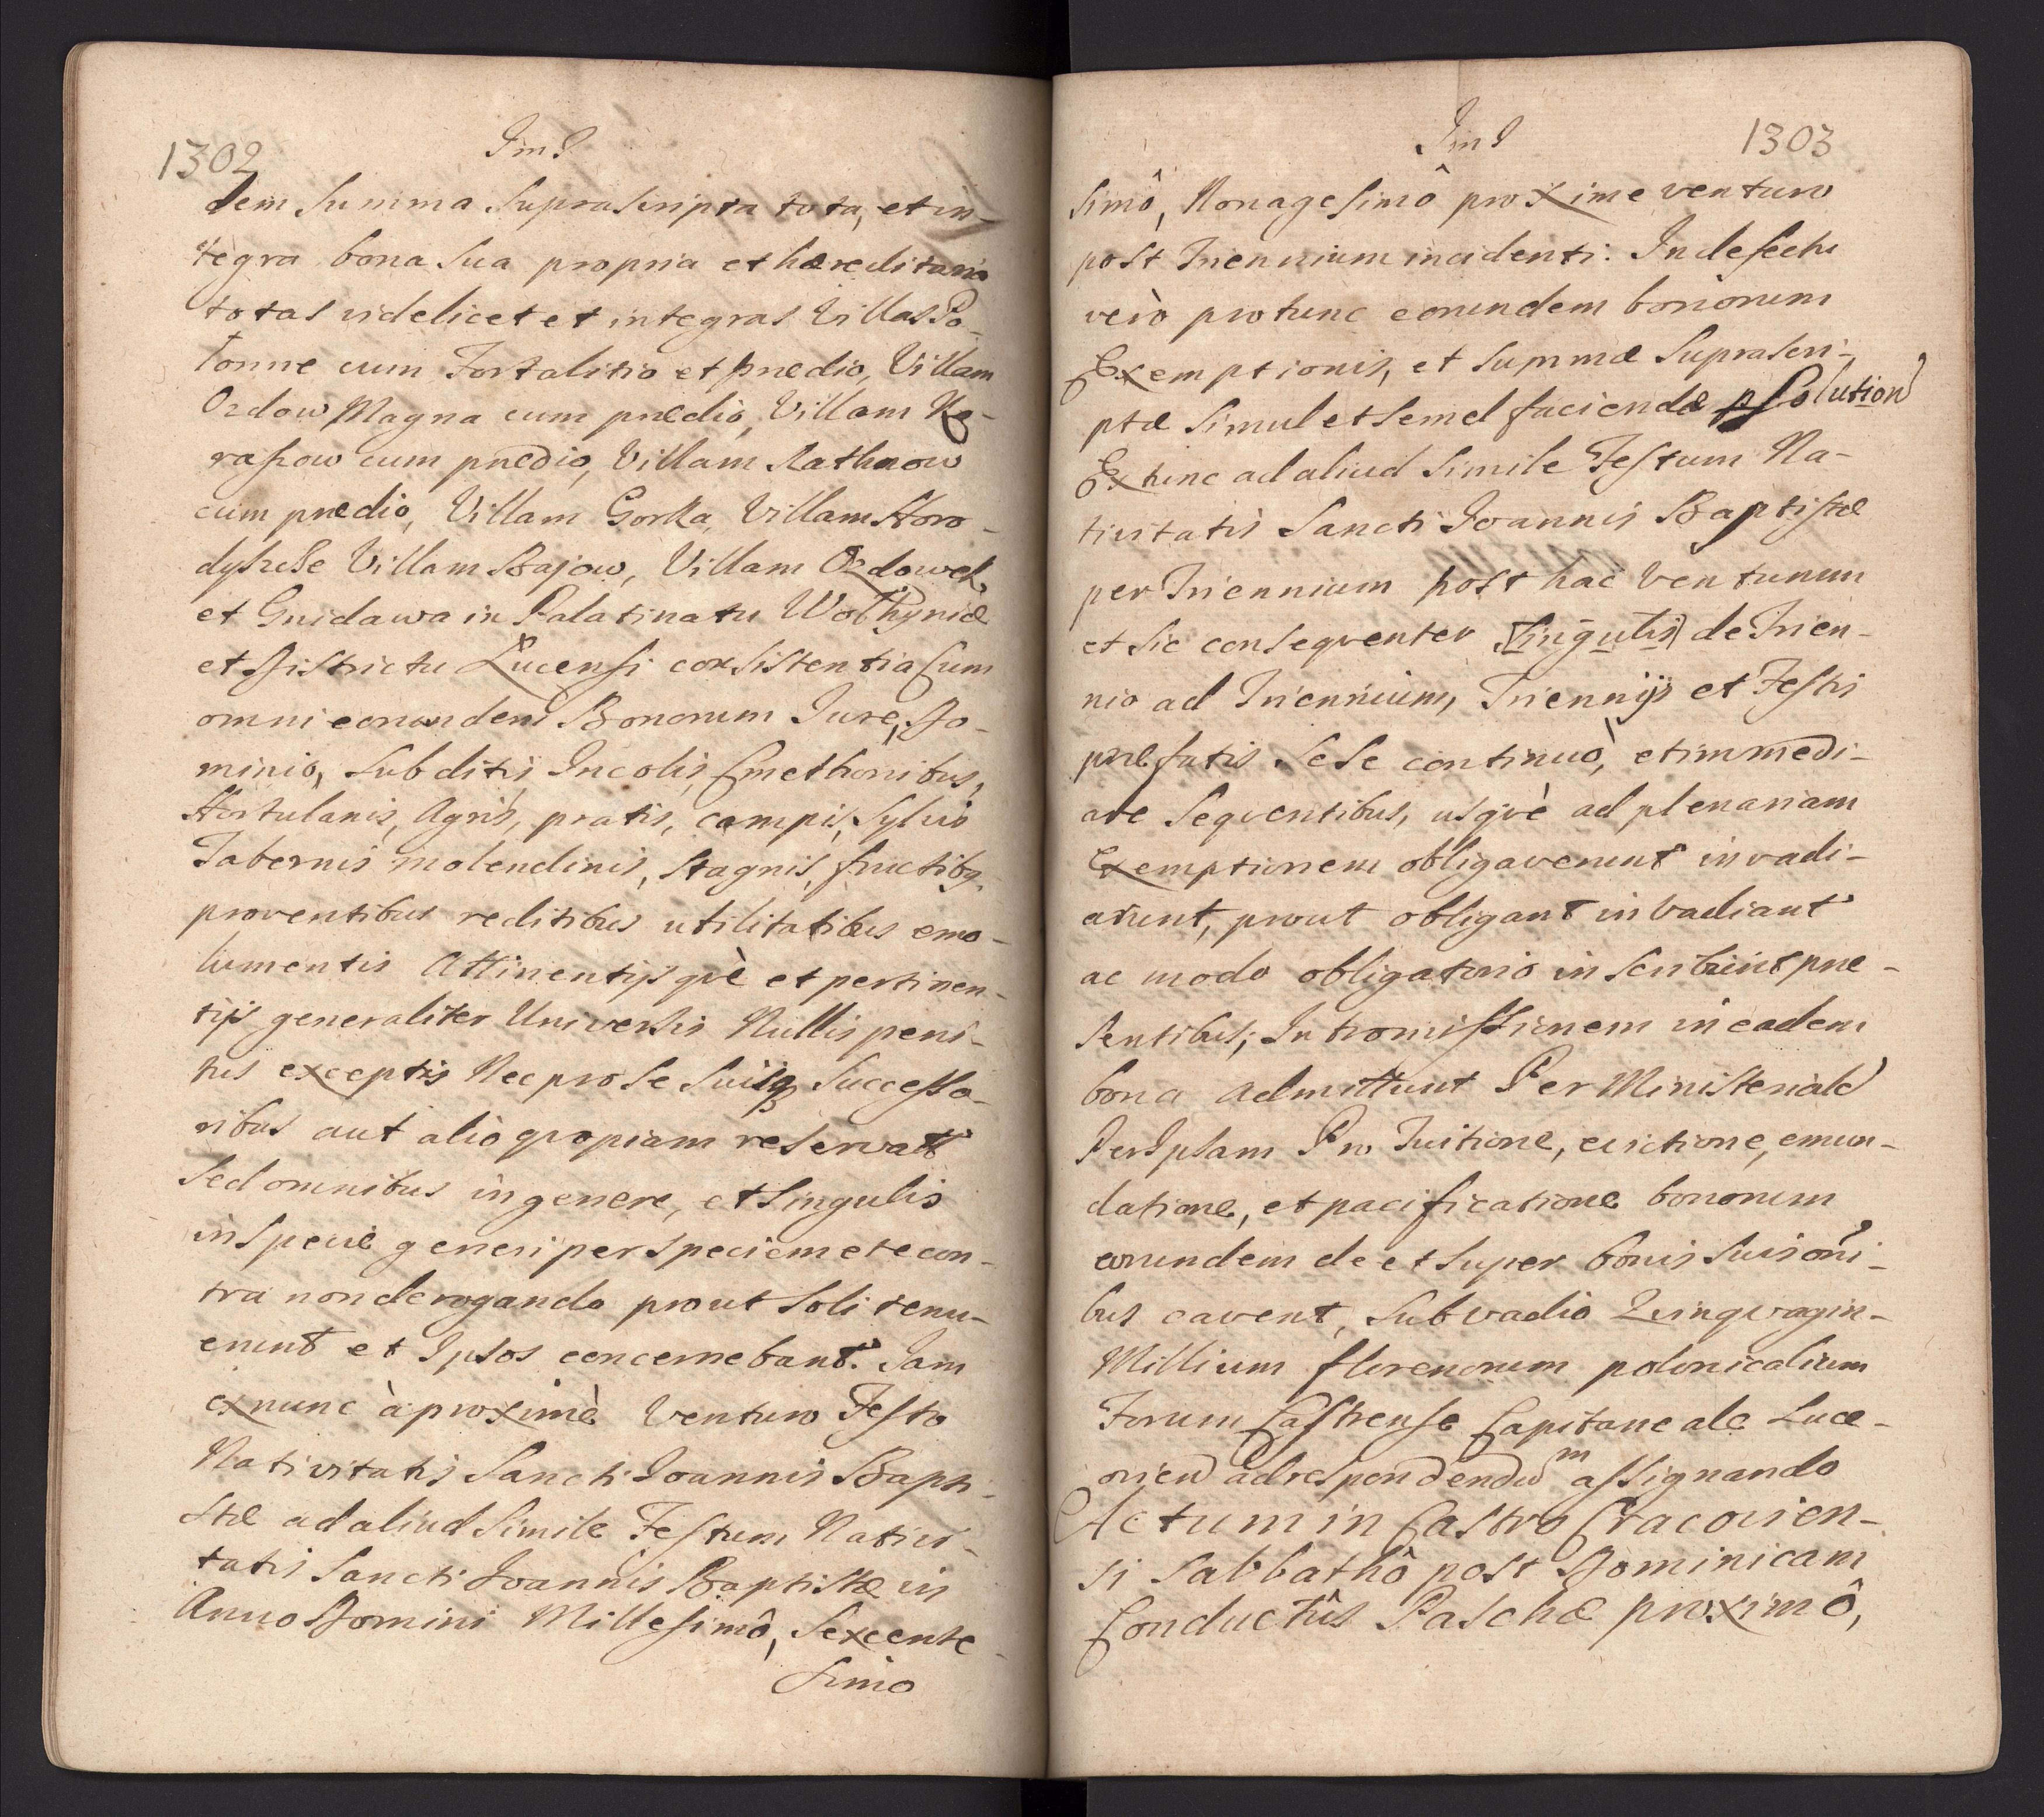 1302
Im J
dem Summa Suprascripta tota, et in-
tegra bona sua propria et hæreditaria
totas videlicet et integras Villas Po-
tonne cum Fortalitio et prædio, Villam
Ozdow Magna cum prædio, Villam Ka-
raszow cum prædio, Villam Rathnow
cum prædio, Villam Gorka, Villam Horo-
dyszcse Villam Bajow, Villam Ozdowek
et Gnidawa in Palatinatu Wolhyniæ
et Districtu Lucensi consistentia Cum
omni eorundem Bonorum Jure, Do-
minio, Subditis Incolis, Cmethonibus,
Hortulanis, Agris, pratis, campis, Sylvis
Tabernis molendinis, Stagnis, fructibq
proventibus reditibus utilitatibus emo-
lumentis Attinentijsqvè et pertinen-
tijs generaliter Universis Nullis peni-
tus exceptis Nec pro Se Suisq Successo-
ribus aut alio qvopiam reservatt
Sed omnibus in genere, et Singulis
in Specie generi per Speciem et econ-
tra non derogando prout Soli tenu-
erunt et Ipsos concernebant. Jam
ex nunc à proximè Venturo Festo
Nativitatis Sancti Joannis Bapti-
stæ ad aliud Simile Festum Nativi-
tatis Sancti Joannis Baptistæ in
Anno Domini Millesimô, Sexcente-
simo
Im J 1303
simô, Nonagesimô proxime venturo
post Triennium incidenti: In defectu
verò pro tunc eorundem bonorum
Exemptionis, et Summæ Suprascri-
ptæ Simul et Semel faciendæ Solution
Ex tunc ad aliud Simile Festum Na-
tivitatis Sancti Joannis Baptistæ
per Triennium post hac Venturum
et Sic conseqventer Singulis de Trien-
nio ad Triennium, Triennijs et Festis
præfatis Se Se continuò, et immedi-
ate Seqventibus, usqvè ad plenariam
Exemptionem obligaverunt invadi-
arunt, prout obligant in Vadiant
ac modo obligatorio inscribunt præ-
sentibus; Intromissionem in eadem
bona admittunt Per Ministeriale
Per Ipsam Pro Tuitione, evictione, emun-
datione, et pacificatione bonorum
eorundem de et Super bonis Suis oni-
bus cavent, Sub vadio Qvinqvagin-
Millium florenorum polonicalium
Forum Castrense Capitaneale Luce-
orien ad respondendum assignando
Actum in Castro Cracovien-
si Sabbathô post Dominicam
Conductûs Paschæ proximô,